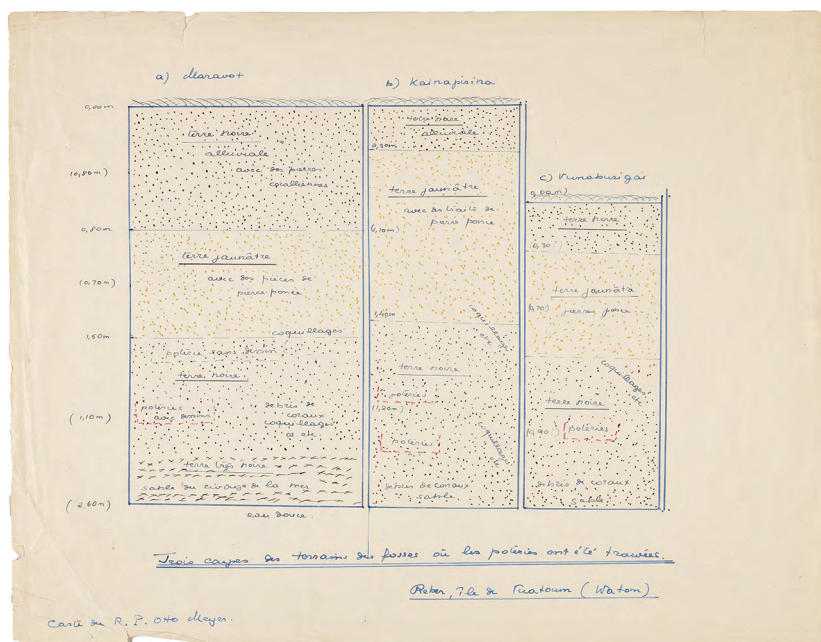 a) Maravot
0,00m
terre noire
alluviale
avec des pierres
coralliennes
(0,80m)
0,80m
terre jaunâtre
avec des pièces de
pierre ponce
(0,70m)
coquillages
1,50m
poterie sans dessin
terre noire
poteries
avec dessins
debris de
coraux
coquillages
(1,10m)
terre très noire
sable du rivage de la mer
(2,60m)
eau douce.
b) Kainapirina
terre noire
alluviale
0,30m
terre jaunâtre
pierre ponce
(1,10m)
1,40m
coquillages
etc
terre noire
poteries
(1,20m)
poteries
coquillages
etc
debris de coraux
sable
c) Vunaburigai
0,00m)
terre noire
(0,30)
terre jaunâtre
pierres ponce
(0,70)
coquillages
etc
terre noire
(0,90) poteries
debris de coraux
sable
Trois coupes des terrains des fosses où les poteries ont été trouvées.
Reber, Ile de Vuatoum (Watom)
Carte du R. P. Otto Meyer.